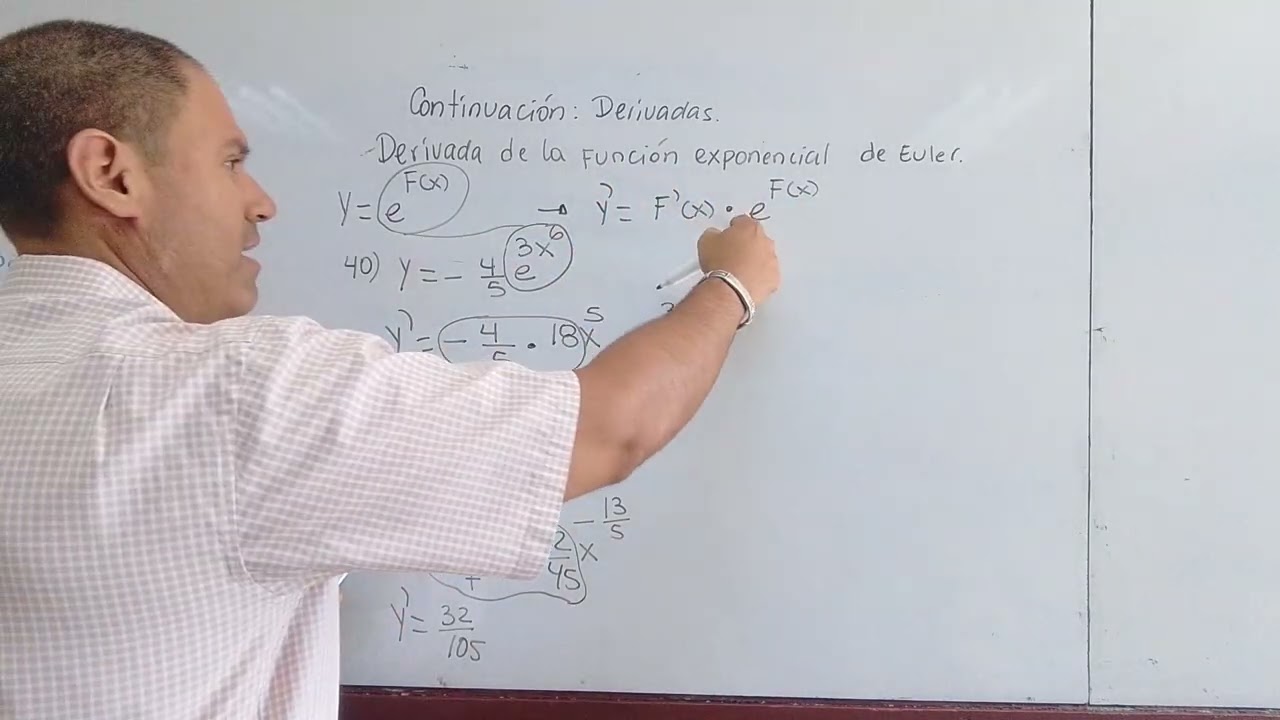 Continuación: Derivadas.
-Derivada de la Función exponencial de Euler.
y = e^F(x) → y' = F'(x) · e^F(x)
40) y = - 4/5 e^3x^6
y' = - 4/5 · 18x^5
2/45 x^-13/5
y' = 32/105